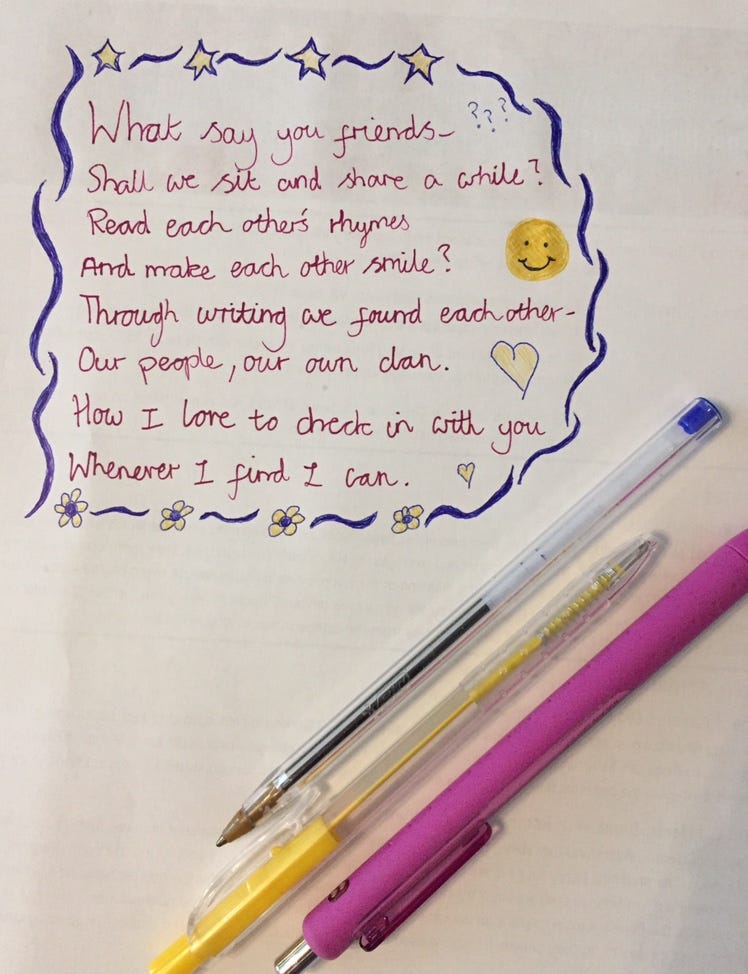 What say you friends-
???
Shall we sit and share a while?
Read each other's rhymes
And make each other smile?
Through writing we found each other-
Our people, our own clan.
How I love to check in with you
Whenever I find I can.